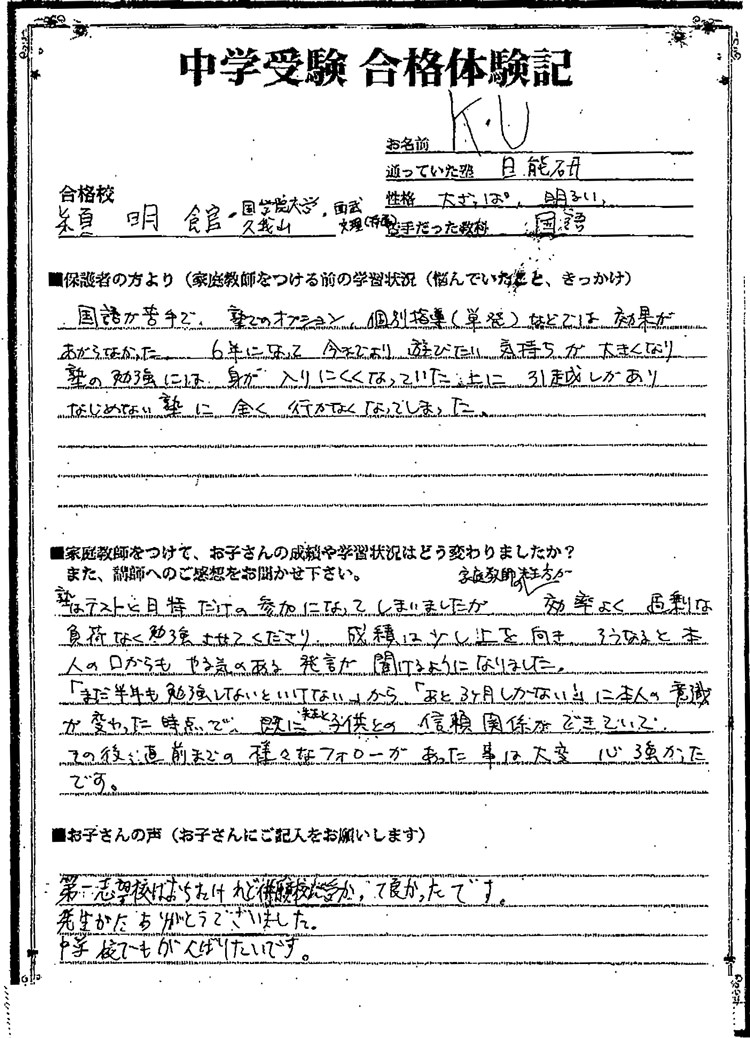 中学受験 合格体験記
お名前 K.U
通っていた塾 日能研
合格校
穎明館・国学院大学久我山・西武文理(特選)
性格 大ざっぱ。明るい。
苦手だった教科 国語
■保護者の方より（家庭教師をつける前の学習状況（悩んでいたこと、きっかけ）
国語が苦手で、塾でのオプション、個別指導(単発)などでは効果が
あがらなかった。 6年になって今までより遊びたい気持ちが大きくなり
塾の勉強には身が入りにくくなっていた上に引越しがあり
なじめない塾に全く行かなくなってしまった。
■家庭教師をつけて、お子さんの成績や学習状況はどう変わりましたか？
また、講師へのご感想をお聞かせ下さい。
塾はテストと日特だけの参加になってしまいましたが 家庭教師の先生方が 効率よく過剰な
負荷なく勉強させてくださり、成績は少し上を向き、そうなると本
人の口からもやる気のある発言が聞けるようになりました。
「まだ半年も勉強しないといけない」から「あと3ヶ月しかない!」に本人の意識
が変わった時点で、既に先生と子供との信頼関係ができていて、
その後、直前までの様々なフォローがあった事は大変心強かった
です。
■お子さんの声（お子さんにご記入をお願いします）
第一志望校はおちたけれど併願校に受かって良かったです。
先生がた ありがとうございました。
中学校でもがんばりたいです。